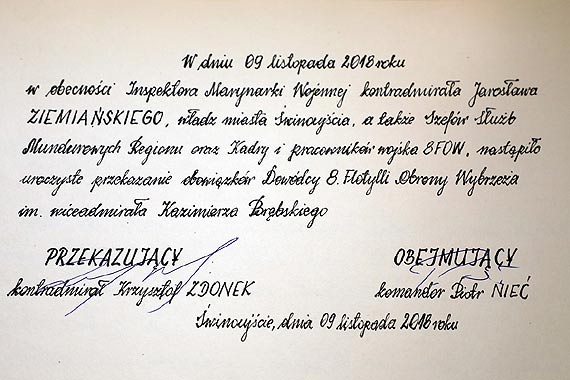 W dniu 09 listopada 2018 roku
w obecności Inspektora Marynarki Wojennej kontradmirała Jarosława
ZIEMIAŃSKIEGO, władz miasta Świnoujścia, a także Szefów Służb
Mundurowych Regionu oraz Kadry i pracowników wojska 8FOW, nastąpiło
uroczyste przekazanie obowiązków Dowódcy 8. Flotylli Obrony Wybrzeża
im. wiceadmirała Kazimierza Porębskiego
PRZEKAZUJĄCY OBEJMUJĄCY
kontradmirał Krzysztof ZDONEK komandor Piotr NIEĆ
Świnoujście, dnia 09 listopada 2018 roku